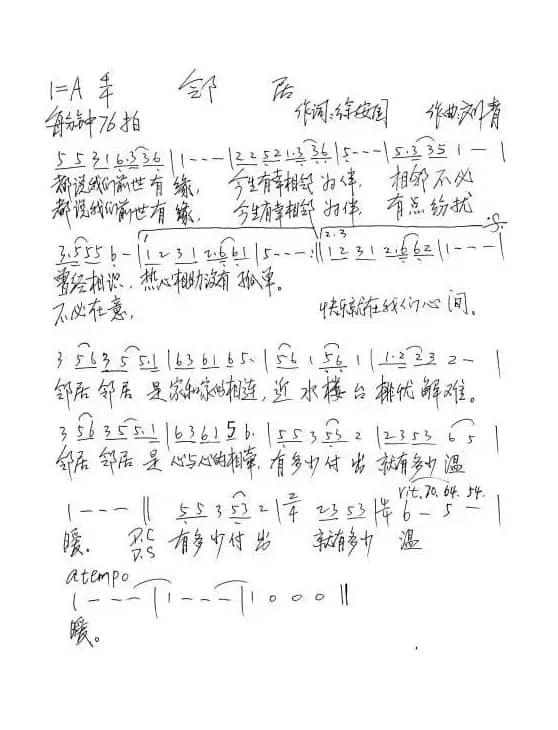 1=A 4/4 邻居
每分钟76拍 作词:徐按国 作曲:刘青
5 5 3 1 6·3 3 6 | 1 - - - | 2 2 5 2 1·3 3 6 | 5 - - - | 5·3 3 5 1 - |
都说我们前世有缘, 今生有幸相邻为伴, 相邻不必
都说我们前世有缘, 今生有幸相邻为伴, 有点纷扰
3·5 5 5 6 - | 1. 1 2 3 1 2·6 6 1 | 5 - - - :|| 2.3 1 2 3 1 2·6 6 2 | 1 - - - |
曾经相识, 热心相助没有孤单。
不必在意, 快乐就在我们心间。
3 5 6 3 5 5·1 | 6 3 6 1 6 5· | 5 6 1 5 6 1 | 1·2 2 3 2 - |
邻居邻居是家和家的相连,近水楼台排忧解难。
3 5 6 3 5 5·1 | 6 3 6 1 5 6· | 5 5 3 5 3 2 | 2 3 5 3 6 5 |
邻居邻居是心与心的相牵,有多少付出就有多少温
rit.70.64.54.
1 - - - || 5 5 3 5 3 2 | 2/4 2 3 5 3 | 4/4 6 - 5 - |
暖。 D.C 有多少付出 就有多少 温
D.S
a tempo
1 - - - | 1 - - - | 1 0 0 0 ||
暖。